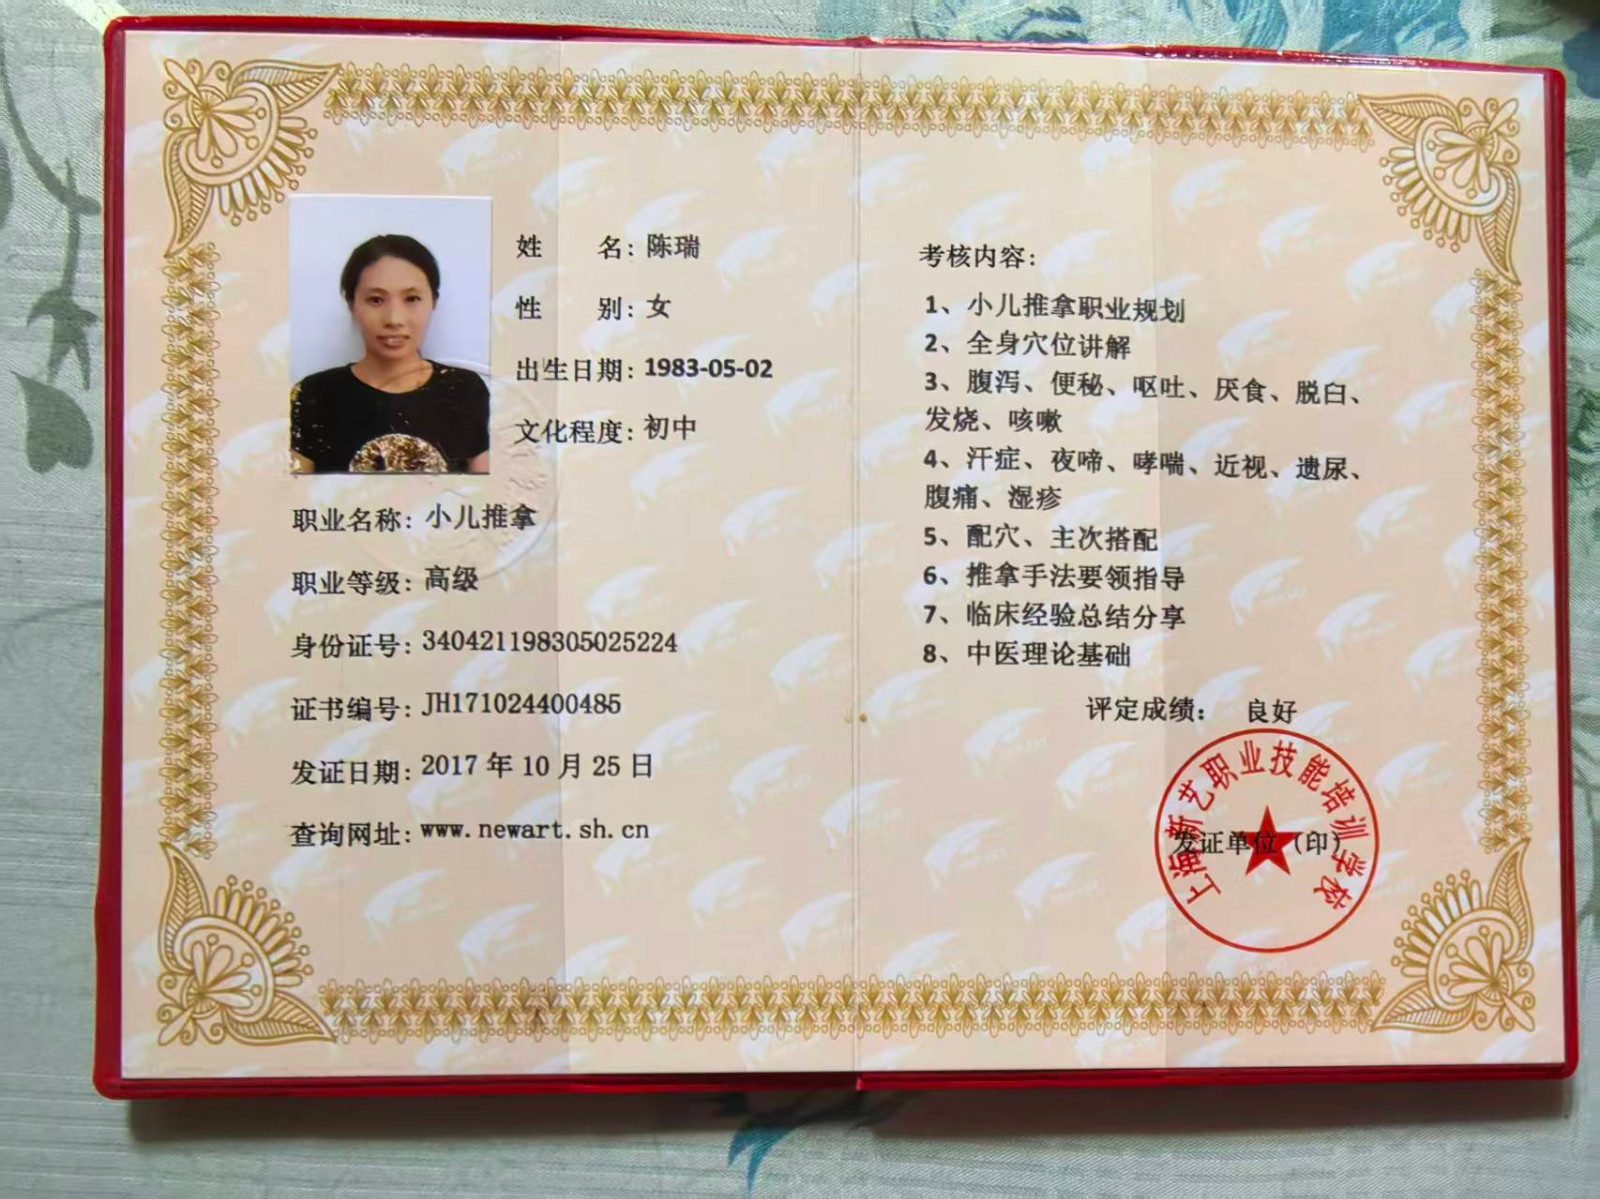 姓 名：陈瑞
性 别：女
出生日期：1983-05-02
文化程度：初中
职业名称：小儿推拿
职业等级：高级
身份证号：340421198305025224
证书编号：JH171024400485
发证日期：2017 年 10 月 25 日
查询网址：www.newart.sh.cn
考核内容：
1、小儿推拿职业规划
2、全身穴位讲解
3、腹泻、便秘、呕吐、厌食、脱臼、
发烧、咳嗽
4、汗症、夜啼、哮喘、近视、遗尿、
腹痛、湿疹
5、配穴、主次搭配
6、推拿手法要领指导
7、临床经验总结分享
8、中医理论基础
评定成绩： 良好
上海新艺职业技能培训学校
发证单位（印）